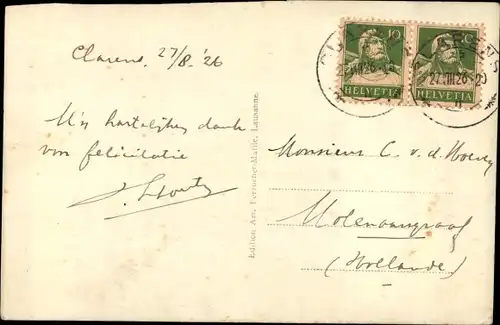 Clarens 27/8.'26
M'n hartelijken dank
voor felicitatie
Edition Art. Perrochet-Matile, Lausanne.
10
HELVETIA
HELVETIA
CLARENS
27.VIII.26
Monsieur C. v. d. Hoeven
Molenaarsgraaf
(Hollande)